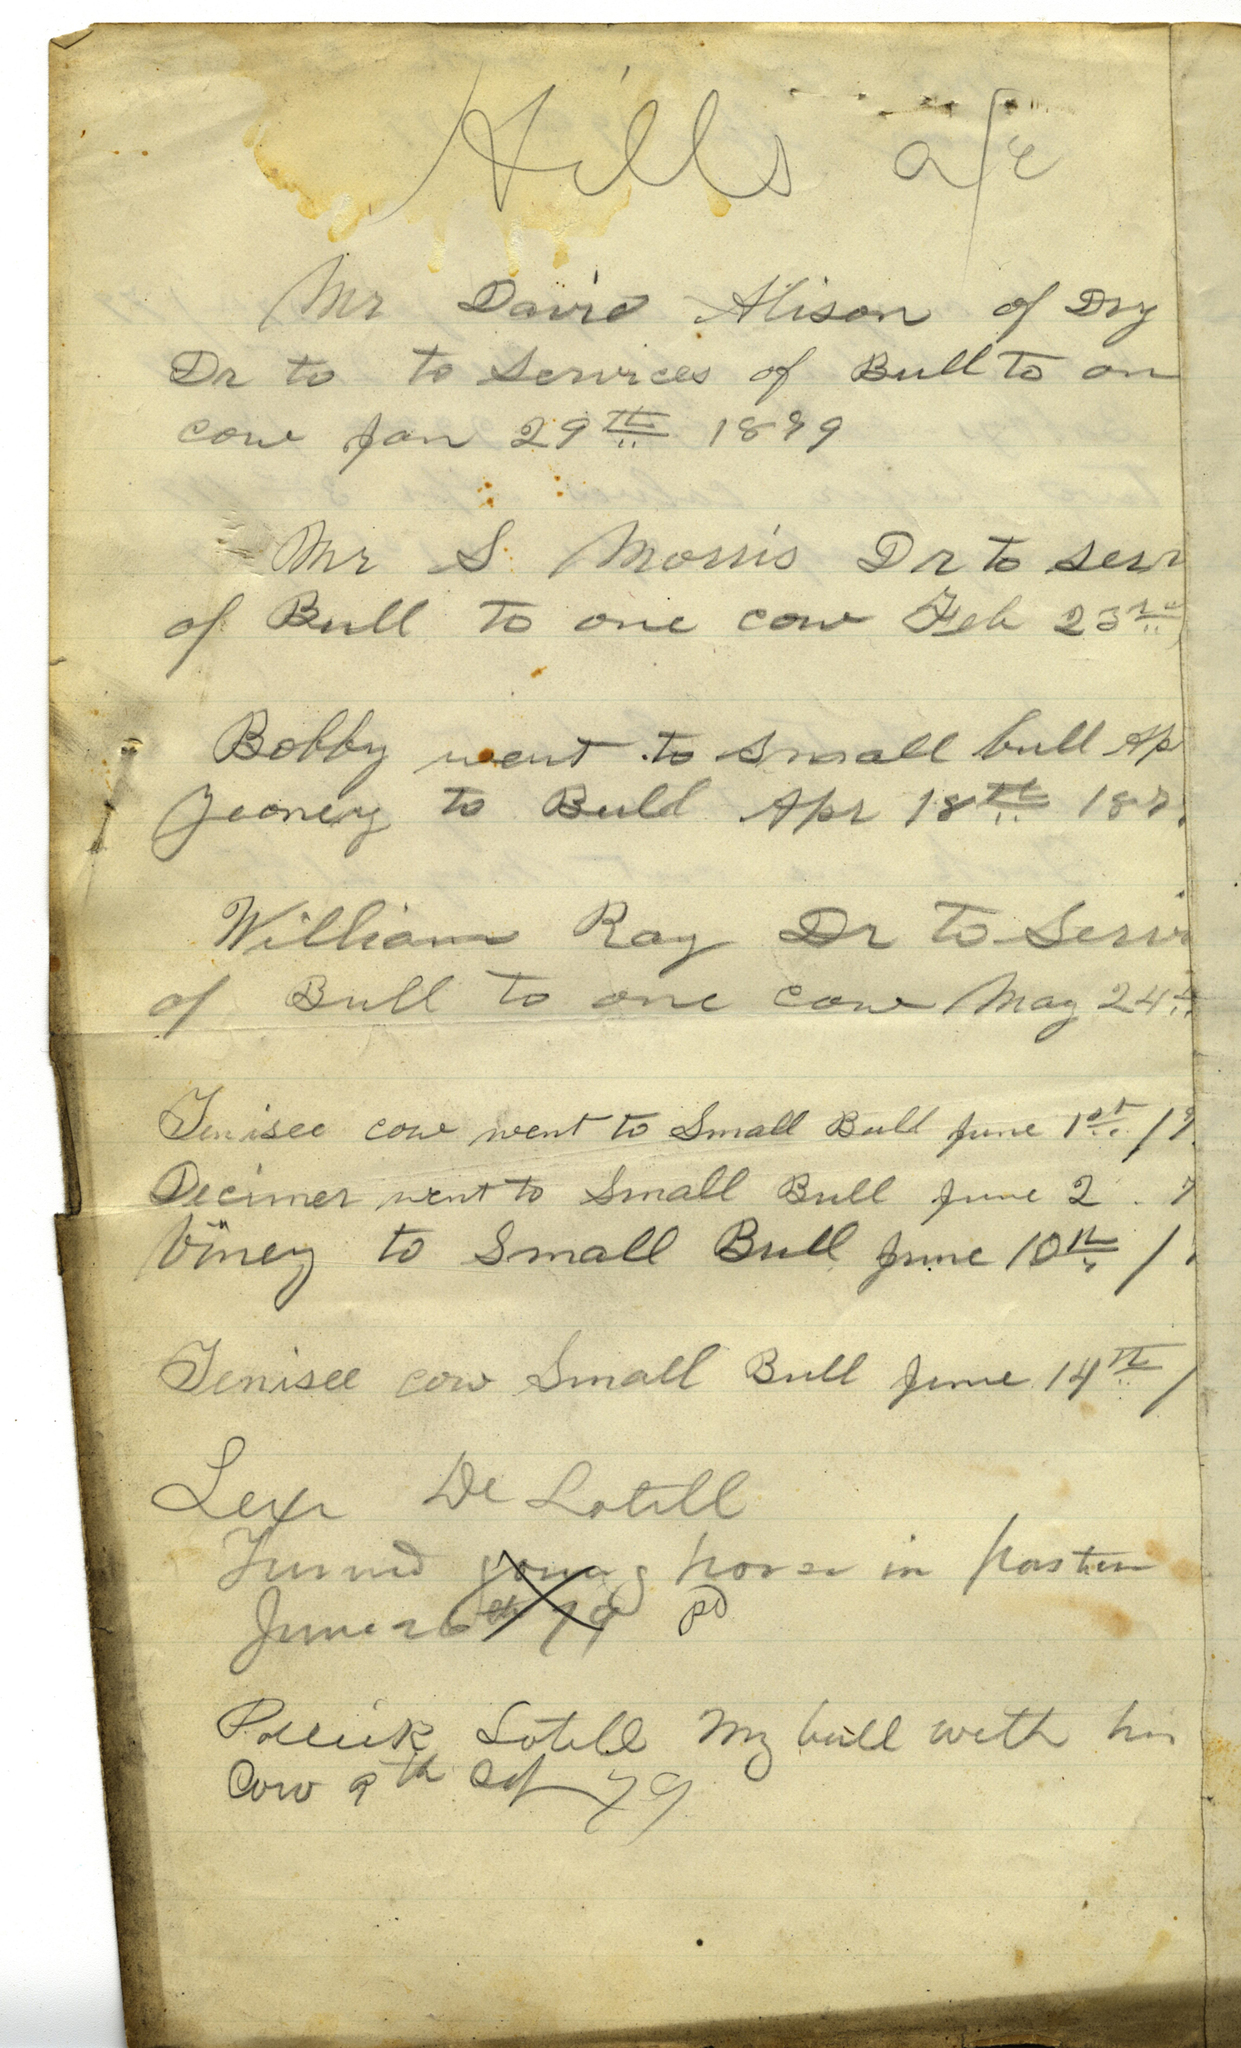 Hills a/c
Mr David Alison of Dry
Dr to to Services of Bull to on
cow Jan 29th 1879
Mr S Morris Dr to serv
of Bull to one cow Feb 23rd
Bobby went to Small bull Ap
Jeoney to Bull Apr 18th 187
William Ray Dr to Serv
of Bull to one cow May 24th
Tenisee cow went to Small Bull June 1st /7
Decimer went to Small Bull June 2 7
Viney to Small Bull June 10th /
Tenisee cow Small Bull June 14th /
De Lotell
Turned young horse in pastur
June 26th 79 pd
Lotell My bull with his
Cow 9th 79